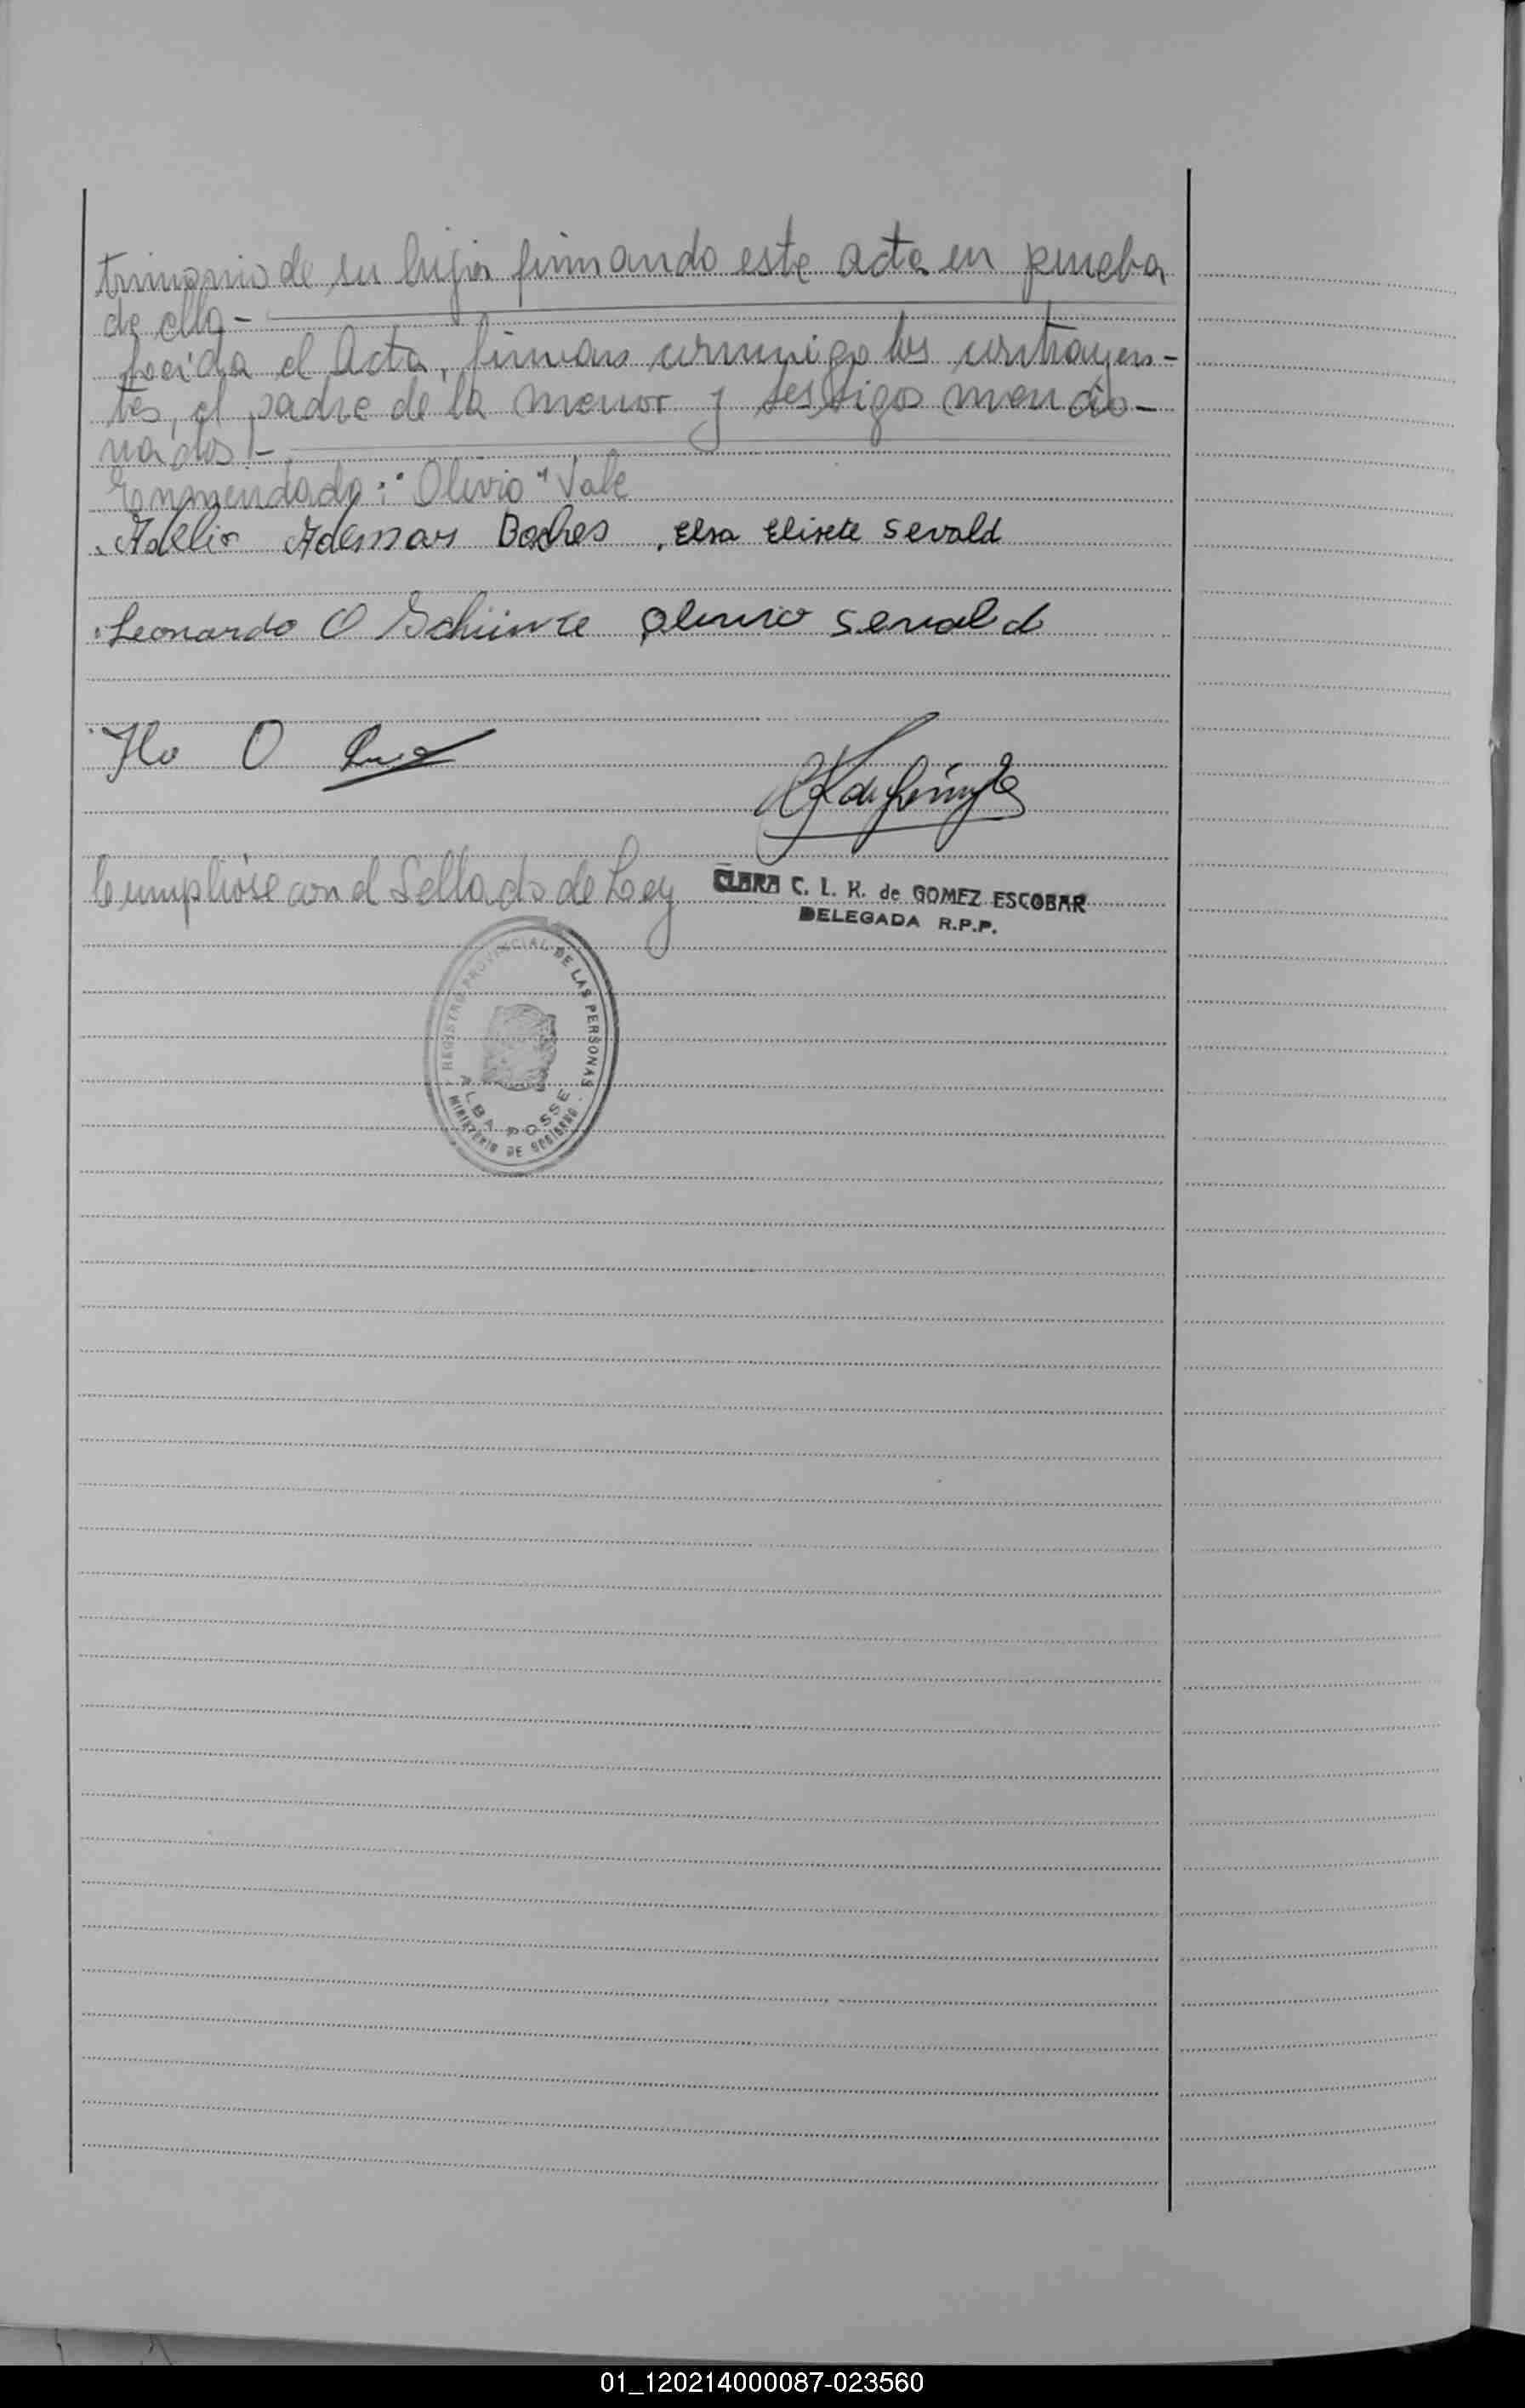 trimonio de su hija firmando este acta en prueba
de ello -
Leída el Acta, firman conmigo los contrayen-
tes, el padre de la menor y testigos mencio-
nados! -
Enmendado: "Olivio" Vale
Adelio Ademar , Elsa Elisete Sevald
Leonardo O Schünke Olivio Sevald
Ilo O
Cumplióse con el Sellado de Ley
CLARA C. I. K. de GOMEZ ESCOBAR
DELEGADA R.P.P.
REGISTRO PROVINCIAL DE LAS PERSONAS
ALBA POSSE
MINISTERIO DE GOBIERNO
01_120214000087-023560